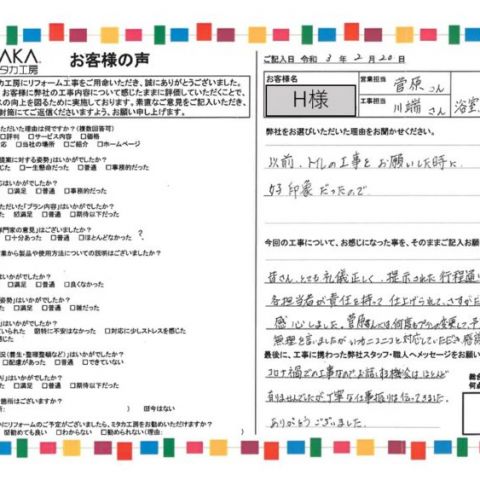 AKA.
タカ工房
お客様の声
タカ工房にリフォーム工事をご用命いただき、誠にありがとうございました。
お客様に弊社の工事内容について感じたままに評価していただくことで、
スの向上を図るために実施しております。素直なご意見をご記入いただき、
封筒にてご返信くださいますよう、お願い申し上げます。
ただいた理由は何ですか?(複数回答可)
□評判 □サービス内容 □価格
応 □当社の場所 □ご紹介 □ホームページ
提案に対する姿勢」はいかがでしたか?
じた □一生懸命だった □普通 □事務的だった
応はいかがでしたか?
□満足 □普通 □事務的だった
ただいた「プラン内容」はいかがでしたか?
満足 □普通 □期待以下だった
専門家の意見」はございましたか?
□十分あった □普通 □ほとんどなかった ?
業から製品や使用方法についての説明はございましたか?
はいかがでしたか?
□満足 □普通 □良くなかった
姿勢」はいかがでしたか?
□満足 □普通 □雑だった
」はいかがでしたか?
ていられた 特に不安はなかった □対応に少しストレスを感じた
した
況(養生・整理整頓など)」はいかがでしたか?
□配慮があった □普通 □できていない
り」はいかがでしたか?
た □満足 □普通 □期待以下だった
箇所はございますか?
) 今はない
にリフォームのご予定がございましたら、ミタカ工房をお勧めいただけますか?
勧めても良い □わからない □勧められない(理由:
ご記入日 令和 3年 2月 20日
お客様名
H様
営業担当
菅原さん
工事担当
川端さん
浴室
弊社をお選びいただいた理由をお聞かせください。
以前、トイレの工事をお願いした時に
好印象だったので
今回の工事について、お感じになった事を、そのままご記入お願
皆さん、とても礼儀正しく、提示された行程通り
各担当者が責任を持って仕上げられて、さすがだ
感心しました。菅原さんには、何度もプランの変更して、
無理を言いましたがいつもニコニコと対応していただき、感謝
最後に、工事に携わった弊社スタッフ・職人へメッセージをお願い
コロナ禍での工事なのでお話する機会はほとんど
ありませんでしたが、丁寧な仕事振りは伝ってきました。
ありがとうございました。